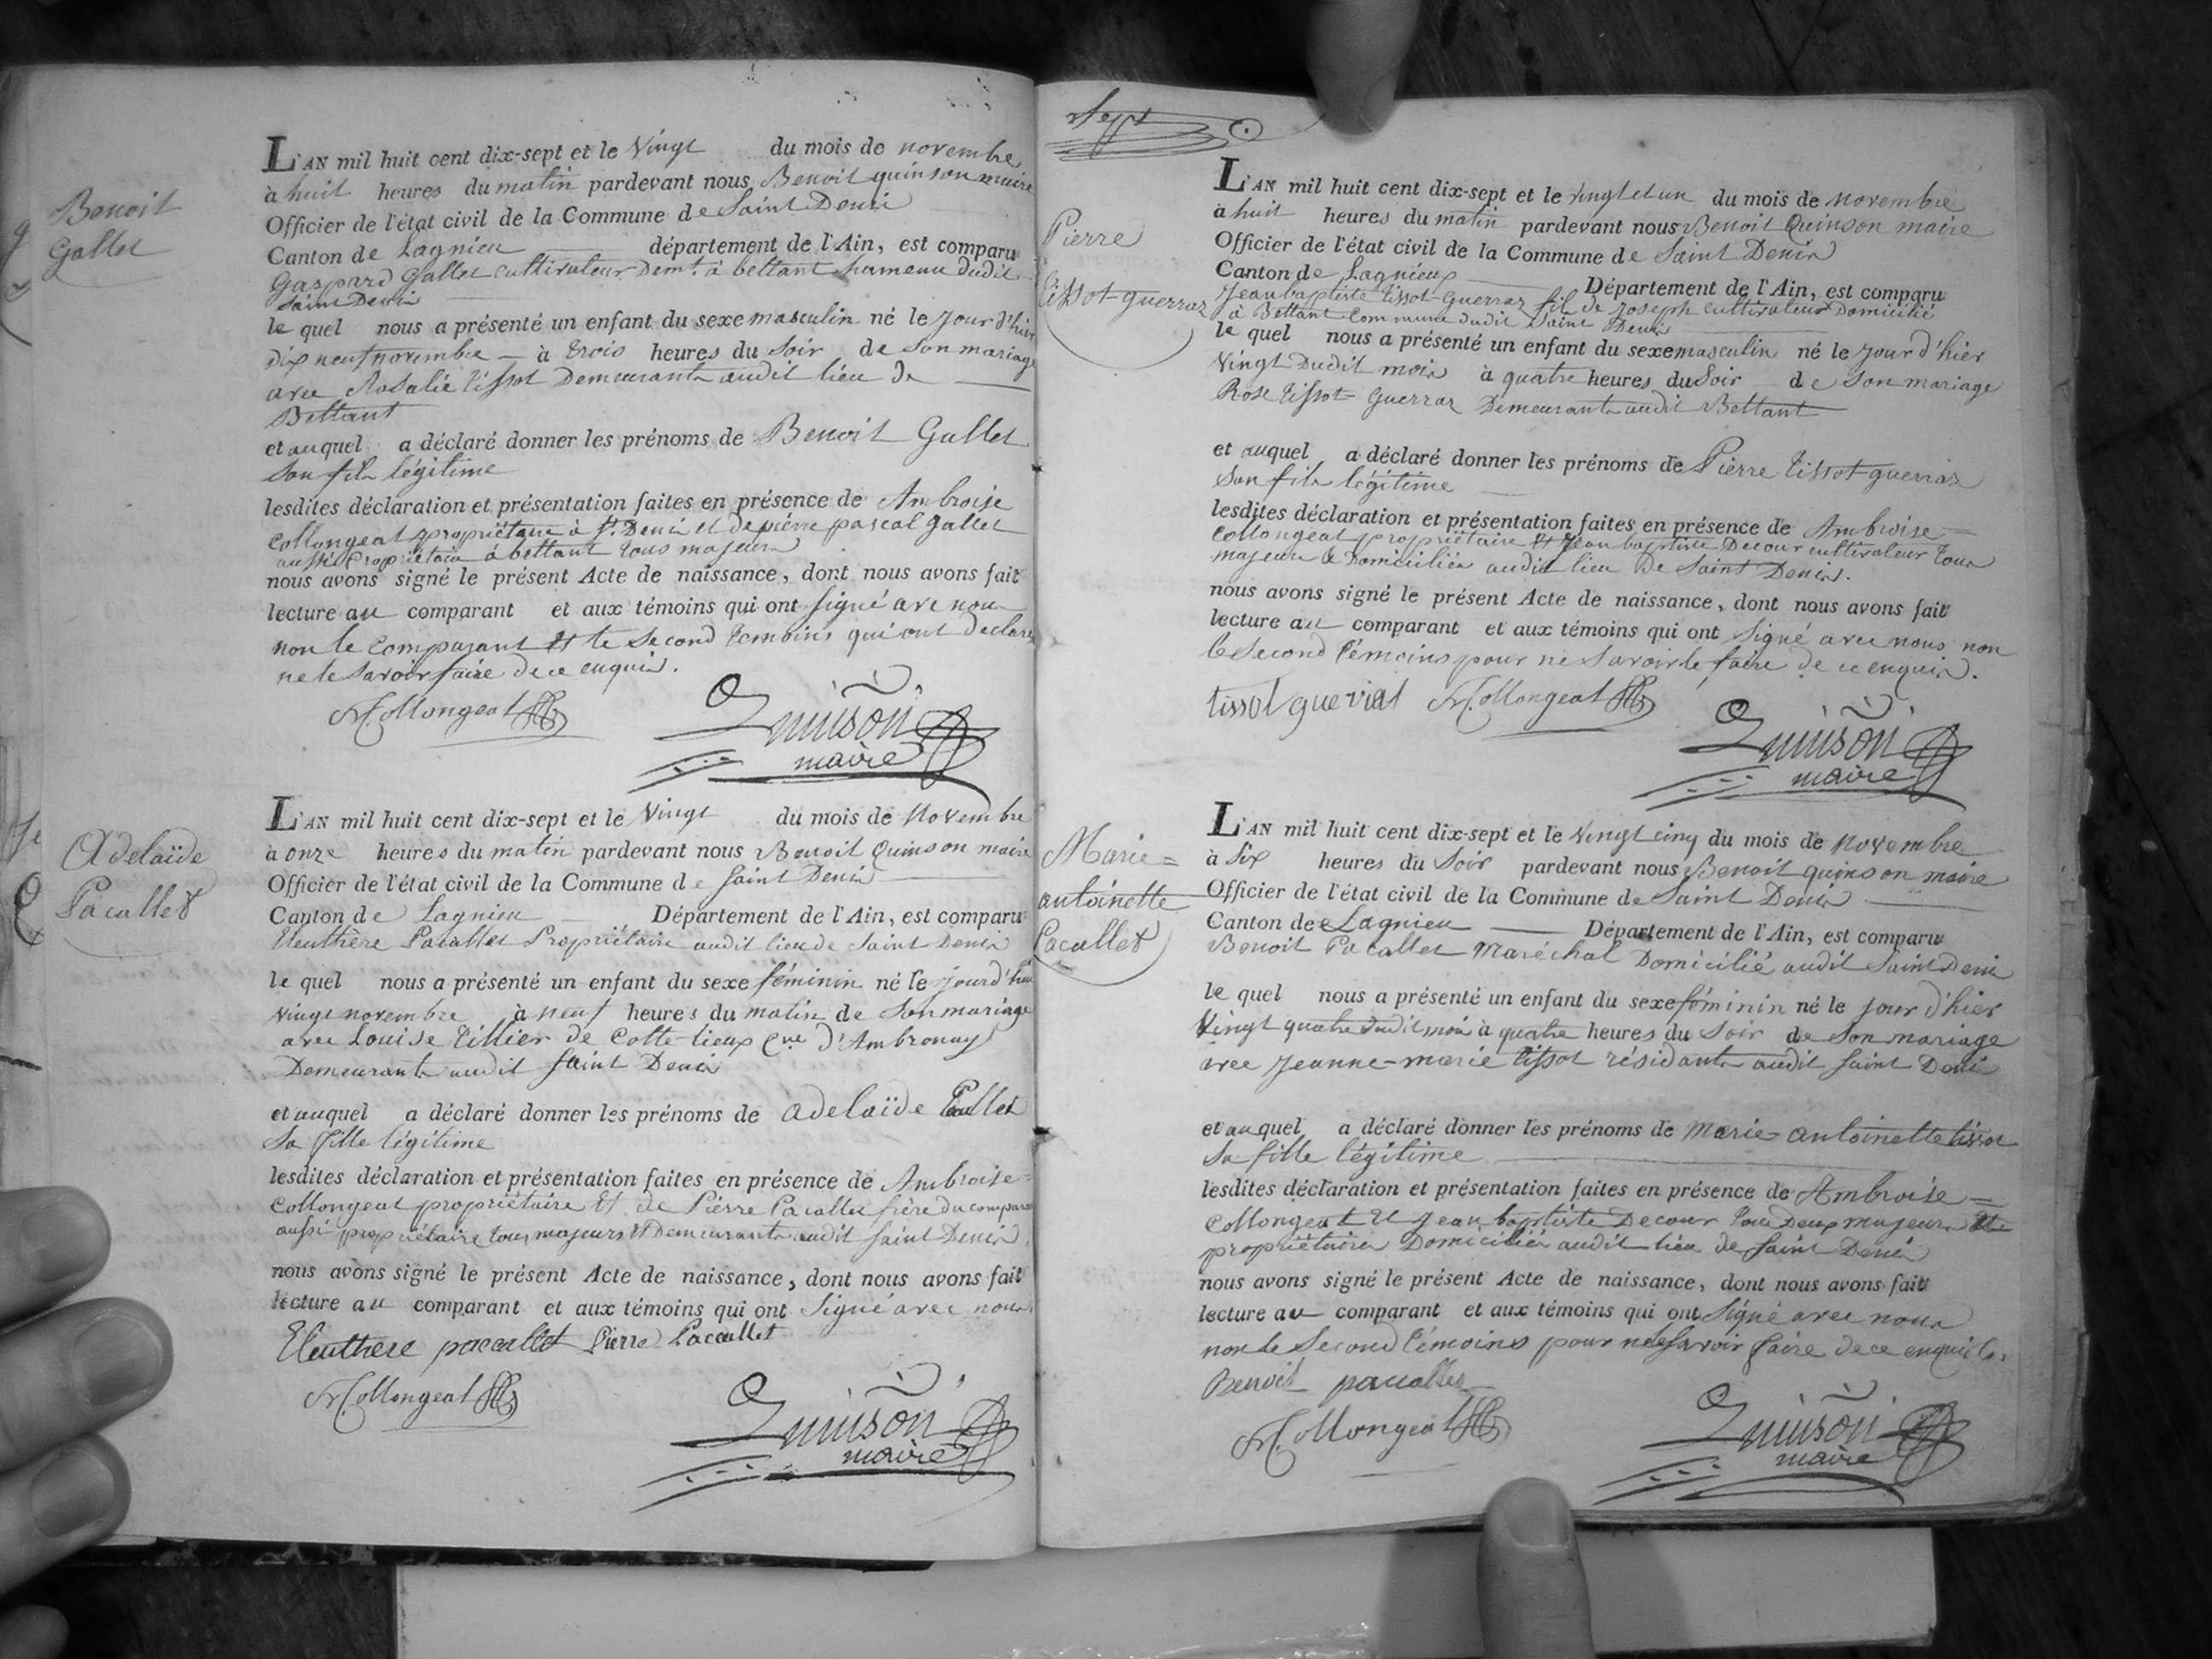 Benoit
Gallet
L'AN mil huit cent dix-sept et le Vingt du mois de novembre
à huit heures du matin pardevant nous Benoit quinson maire
Officier de l'état civil de la Commune de Saint Denis
Canton de Lagnieu département de l'Ain, est comparu
Gaspard Gallet cultivateur Demt. à bettant hameau dudit
Saint Denis
le quel nous a présenté un enfant du sexe masculin né le jour d'hier
dix neuf novembre à trois heures du Soir de Son mariage
avec Rosalie tissot Demeurants audit lieu de
Bettant
et auquel a déclaré donner les prénoms de Benoit Gallet
Son fils légitime
lesdites déclaration et présentation faites en présence de Ambroise
Collongeat propriétaire à St. Denis et de pierre pascal gallet
aussi propriétaire à bettant tous majeurs
nous avons signé le présent Acte de naissance, dont nous avons fait
lecture au comparant et aux témoins qui ont Signé avec nous
non le Comparant et le Second témoins qui ont declaré
ne le Savoir faire de ce enquis.
A Collongeat
Quinson
maire
Adelaïde
Pacallet
L'AN mil huit cent dix-sept et le Vingt du mois de Novembre
à onze heures du matin pardevant nous Benoit Quinson maire
Officier de l'état civil de la Commune de Saint Denis
Canton de Lagnieu Département de l'Ain, est comparu
Eleuthère Pacallet Propriétaire audit lieu de Saint Denis
le quel nous a présenté un enfant du sexe féminin né le jourd'hui
vingt novembre à neuf heures du matin de Son mariage
avec Louise Tillier de Cotte-lieux Cne d'Ambronay
Demeurants audit Saint Denis
et auquel a déclaré donner les prénoms de adelaïde
Sa fille légitime
lesdites déclaration et présentation faites en présence de Ambroise=
Collongeat propriétaire Et de Pierre Pacallet frère du compara
aussi propriétaire tous majeurs et Demeurants audit Saint Denis
nous avons signé le présent Acte de naissance, dont nous avons fait
lecture au comparant et aux témoins qui ont Signé avec nous
Eleuthere pacallet Pierre Pacallet
A Collongeat
Quinson
maire
Sept
Pierre
tissot-guerraz
L'AN mil huit cent dix-sept et le vingt et un du mois de Novembre
à huit heures du matin pardevant nous Benoit Quinson maire
Officier de l'état civil de la Commune de Saint Denis
Canton de Lagnieux Département de l'Ain, est comparu
Jean baptiste tissot-Guerraz fils de Joseph cultivateur Domicilié
à Bettant Commune dudit Saint Denis
le quel nous a présenté un enfant du sexe masculin né le jour d'hier
Vingt Dudit mois à quatre heures du Soir de Son mariage
Rose tissot-Guerraz Demeurants audit Bettant
et auquel a déclaré donner les prénoms de Pierre tissot-guerraz
Son fils légitime
lesdites déclaration et présentation faites en présence de Ambroise
Collongeat propriétaire et Jean baptiste Decour cultivateur tous
majeurs & Domiciliés audit lieu De Saint Denis.
nous avons signé le présent Acte de naissance, dont nous avons fait
lecture au comparant et aux témoins qui ont Signé avec nous non
le Second témoins pour ne Savoir le faire de ce enquis.
A Collongeat
Quinson
maire
Marie=
antoinette
Pacallet
L'AN mil huit cent dix-sept et le Vingt cinq du mois de Novembre
à Six heures du Soir pardevant nous Benoit quinson maire
Officier de l'état civil de la Commune de Saint Denis
Canton de Lagnieu Département de l'Ain, est comparu
Benoit Pacallet Maréchal Domicilié audit Saint Denis
le quel nous a présenté un enfant du sexe féminin né le jour d'hier
Vingt quatre dudit mois à quatre heures du Soir de Son mariage
avec Jeanne-marie tissot résidants audit Saint Denis
et auquel a déclaré donner les prénoms de Marie-antoinette tissot
Sa fille légitime
lesdites déclaration et présentation faites en présence de Ambroise=
Collongeat Et Jean baptiste Decour tous Deux majeurs Et
propriétaires Domiciliés audit lieu de Saint Denis
nous avons signé le présent Acte de naissance, dont nous avons fait
lecture au comparant et aux témoins qui ont Signé avec nous
non le Second témoins pour ne le Savoir faire de ce enquis
Benoit pacallet
A Collongeat
Quinson
maire